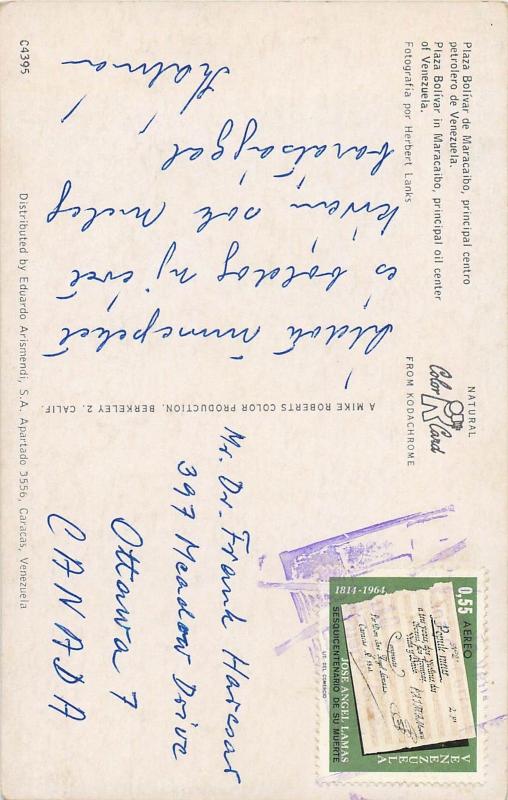 Plaza Bolívar de Maracaibo, principal centro
petrolero de Venezuela.
Plaza Bolívar in Maracaibo, principal oil center
of Venezuela.
Fotografía por Herbert Lanks
C4395
Áldott ünnepeket
és boldog új évet
kíván sok meleg
barátsággal
Kálmán
Distributed by Eduardo Arismendi, S.A. Apartado 3556, Caracas, Venezuela
A MIKE ROBERTS COLOR PRODUCTION, BERKELEY 2, CALIF.
NATURAL
Color Card
FROM KODACHROME
Mr. Dr. Frank Haraszar
397 Meadow Drive
Ottawa 7
CANADA
1814-1964
0,55 AEREO
JOSE ANGEL LAMAS
SESQUICENTENARIO DE SU MUERTE
LIT. DEL COMERCIO
VENEZUELA
Popule meus